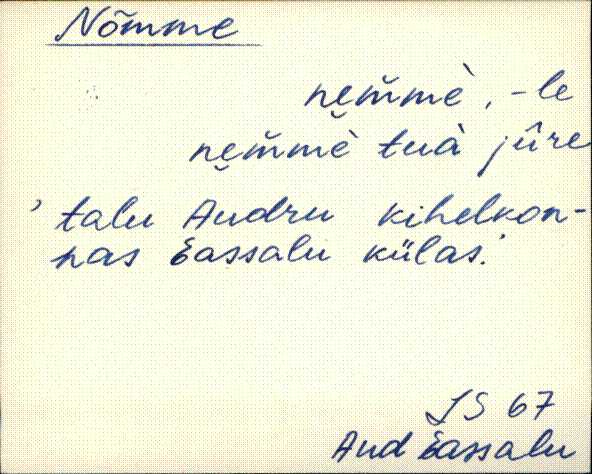 Nõmme
ne̮m̆mè, -le
ne̮m̆mè tuà jûre
'talu Audru kihelkon-
nas Eassalu külas.'
LS 67
Aud Eassalu